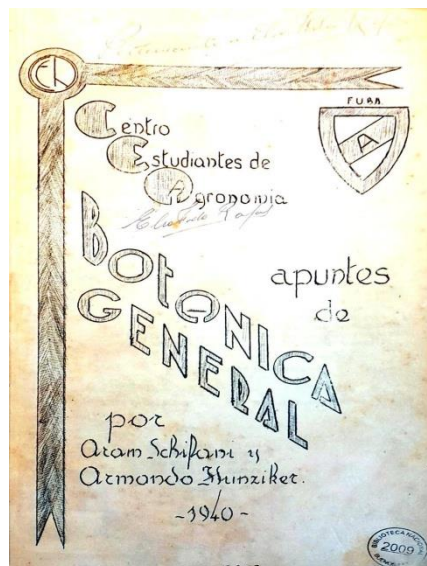 Perteneciente a
FUBA
A
Centro
Estudiantes de
Agronomia
apuntes
de
BOTANICA
GENERAL
por
Aram Schifani y
Armando Hunziker.
-1940-
BIBLIOTECA NACIONAL
2009